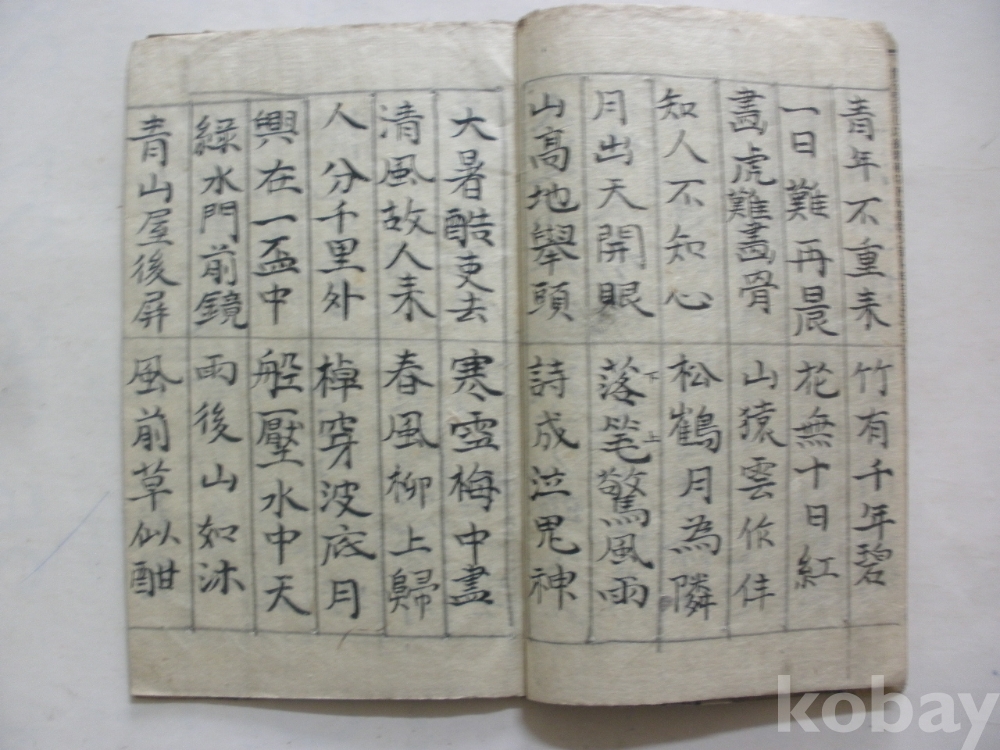 青年不重来 竹有千年碧
一日難再晨 花無十日紅
畵虎難畵骨 山猿雲作伴
知人不知心 松鶴月為隣
月出天開眼 落下筆上驚風雨
山高地擧頭 詩成泣鬼神
大暑酷吏去 寒雪梅中盡
清風故人来 春風柳上歸
人分千里外 棹穿波底月
興在一盃中 船壓水中天
緑水門前鏡 雨後山如沐
青山屋後屏 風前草似酣
kobay